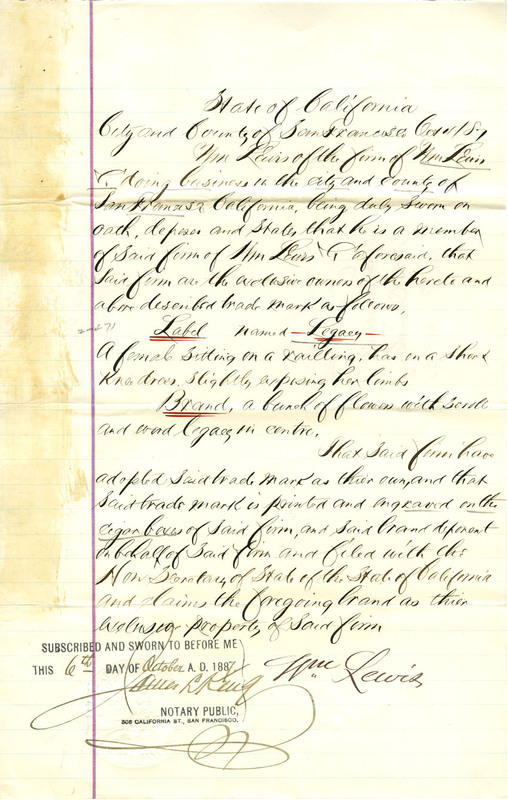 State of California
City and County of San Francisco Oct 4/87
Wm Lewis of the firm of Wm Lewis
& doing business in the city and county of
San Francisco California, being duly sworn on
oath, deposes and states that he is a member
of said firm of Wm Lewis & aforesaid, that
said firm are the exclusive owners of the hereto and
above described trade mark as follows,
Label named - Legacy -
A female sitting on a railling, has on a short
Knee dress, slightly exposing her limbs
Brand, a bunch of flowers with scroll
and word legacy in centre.
That said firm have
adopted said trade mark as thier own, and that
said trade mark is printed and engraved on the
cigar boxes of said firm, and said brand deponent
on behalf of said firm and filed with the
Hon Secretary of State of the State of California
and claims the foregoing brand as thier
exclusive property of said firm
SUBSCRIBED AND SWORN TO BEFORE ME
THIS 6th DAY OF October A. D. 1887
Wm Lewis
James L. King
NOTARY PUBLIC,
308 CALIFORNIA ST., SAN FRANCISCO.